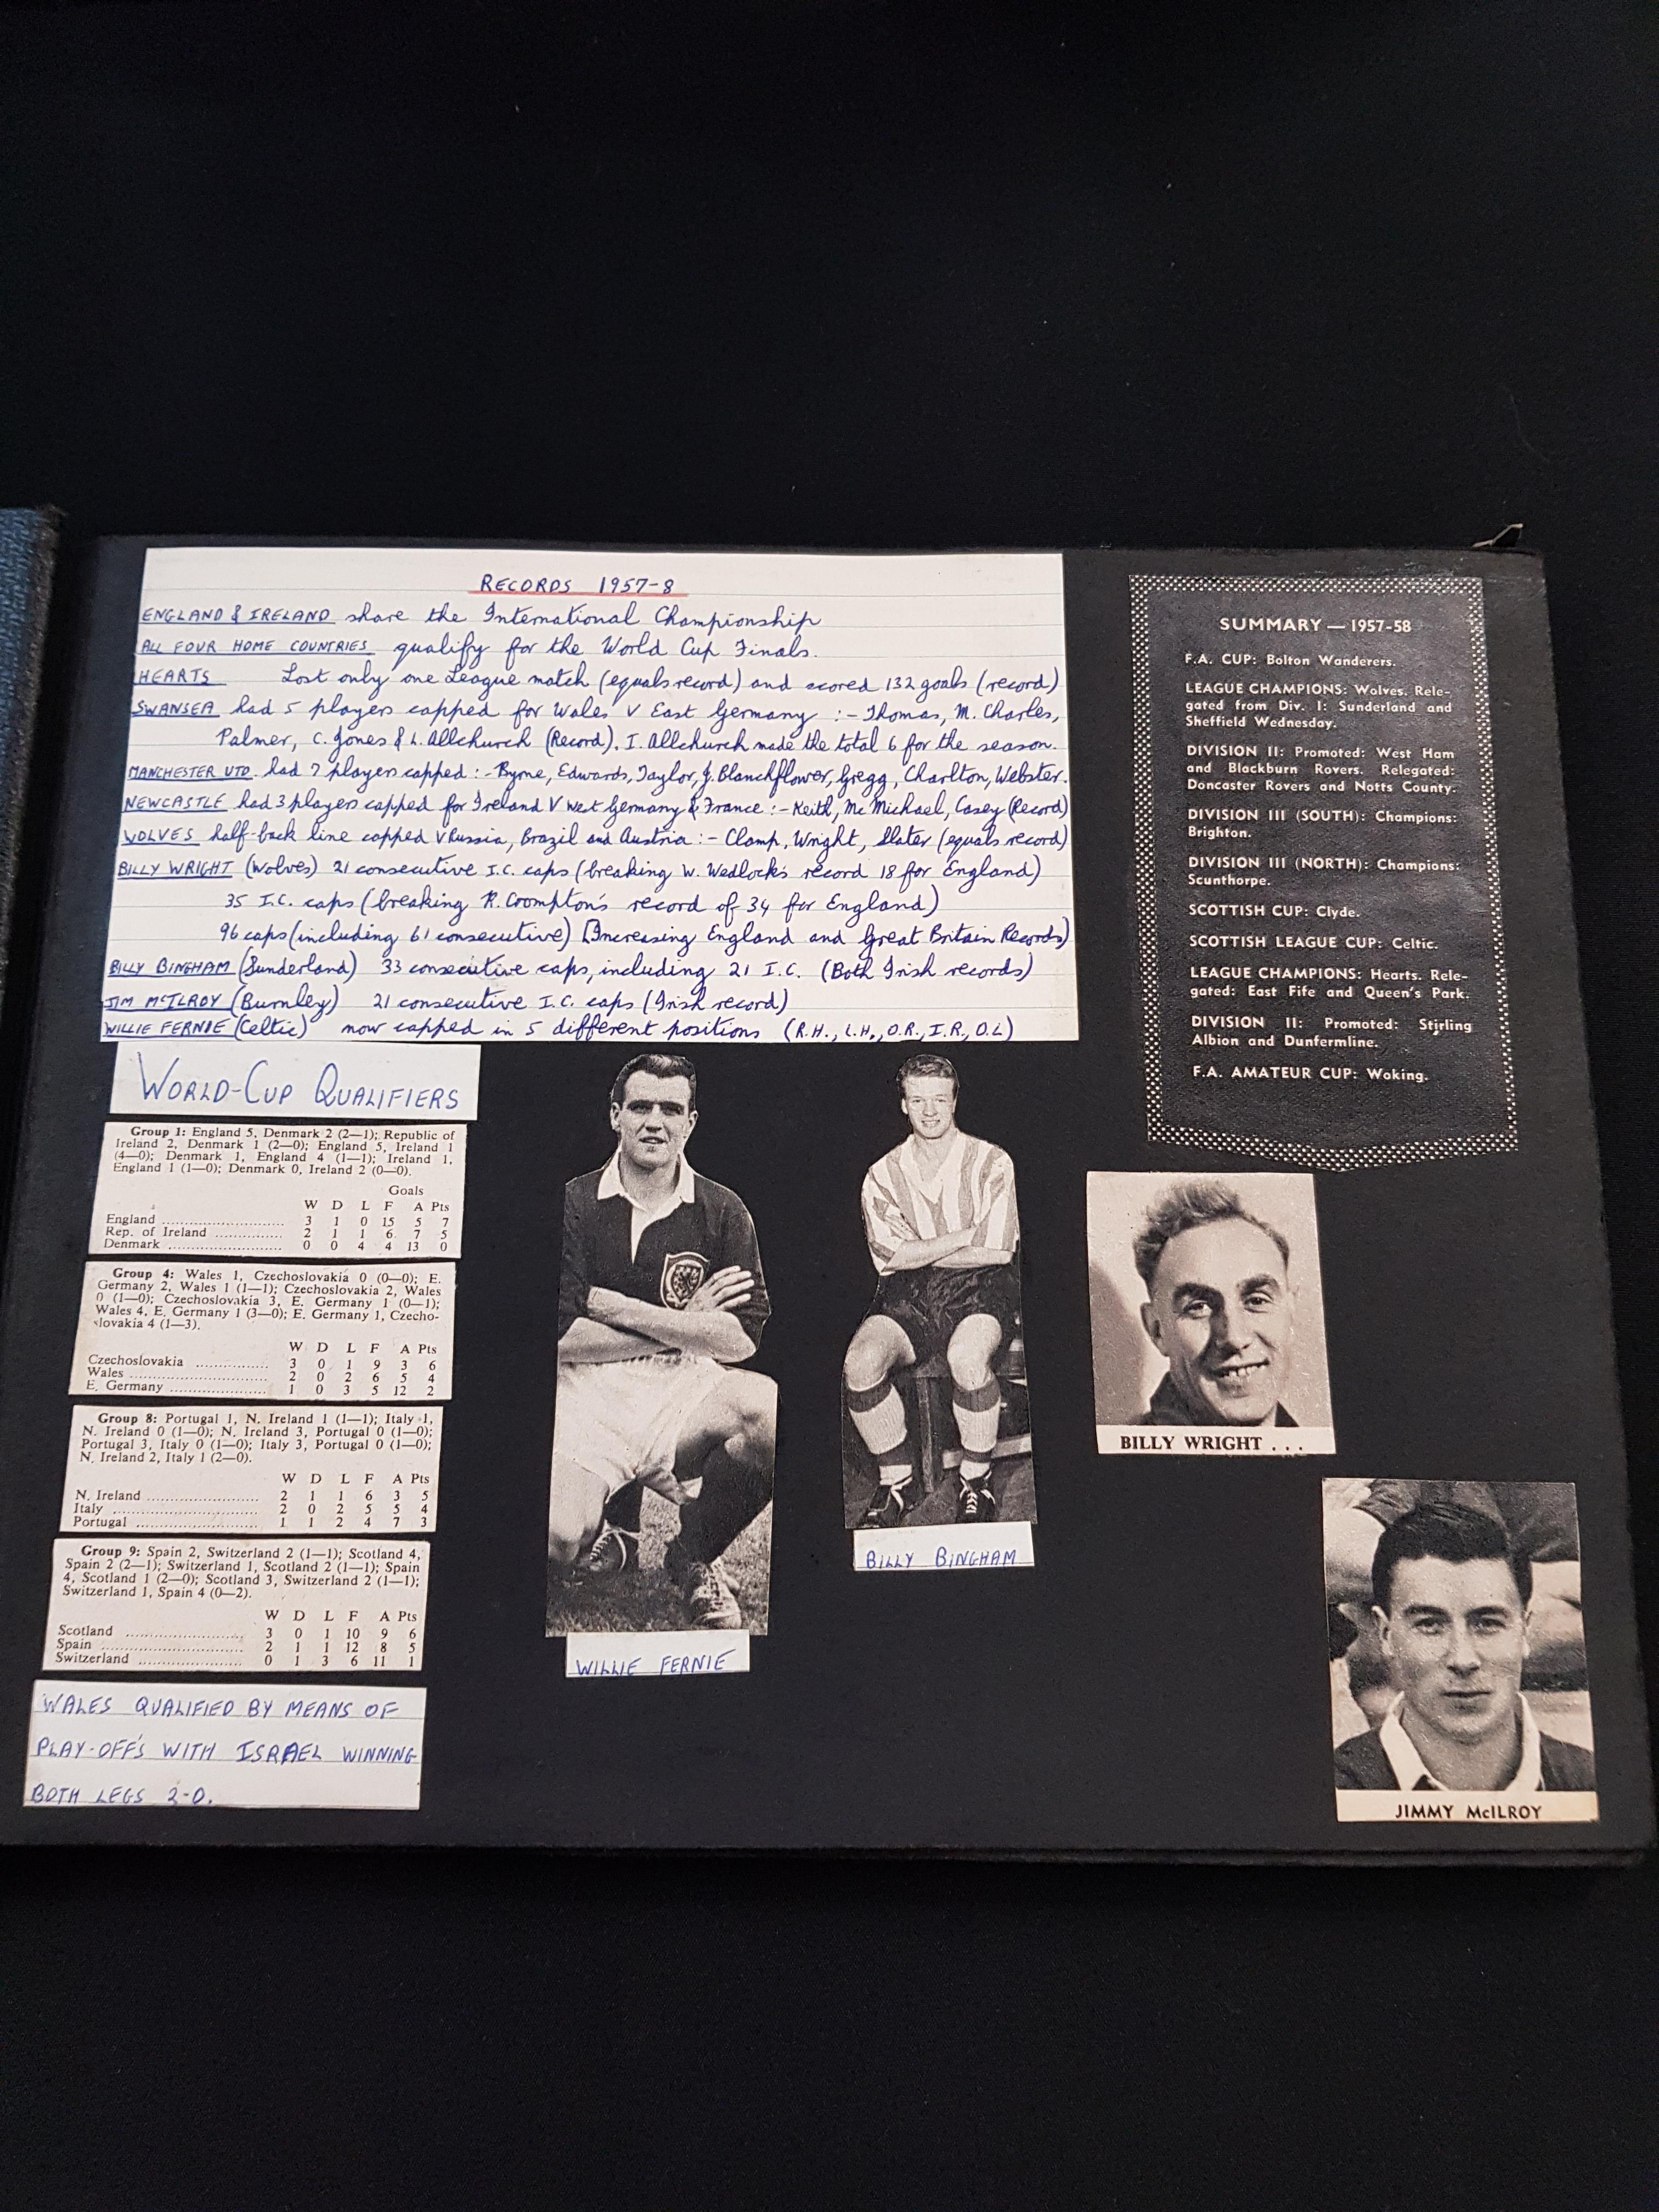 RECORDS 1957-8
ENGLAND & IRELAND share the International Championship
ALL FOUR HOME COUNTRIES qualify for the World Cup Finals.
HEARTS Lost only one League match (equals record) and scored 132 goals (record)
SWANSEA had 5 players capped for Wales V East Germany :- Thomas, M. Charles,
Palmer, C. Jones & L. Allchurch (Record). I. Allchurch made the total 6 for the season.
MANCHESTER UTD. had 7 players capped :- Byrne, Edwards, Taylor, J. Blanchflower, Gregg, Charlton, Webster.
NEWCASTLE had 3 players capped for Ireland V West Germany & France :- Keith, Mc Michael, Casey (Record)
WOLVES half-back line capped v Russia, Brazil and Austria :- Clamp, Wright, Slater (equals record)
BILLY WRIGHT (Wolves) 21 consecutive I.C. caps (breaking W. Wedlock's record 18 for England)
35 I.C. caps (breaking R. Croompton's record of 34 for England)
96 caps (including 61 consecutive) [Increasing England and Great Britain Records)
BILLY BINGHAM (Sunderland) 33 consecutive caps, including 21 I.C. (Both Irish records)
JIM McILROY (Burnley) 21 consecutive I.C. caps (Irish record)
WILLIE FERNIE (Celtic) now capped in 5 different positions (R.H., L.H., O.R., I.R., O.L)
WORLD-CUP QUALIFIERS
Group 1: England 5, Denmark 2 (2—1); Republic of
Ireland 2, Denmark 1 (2—0); England 5, Ireland 1
(4—0); Denmark 1, England 4 (1—1); Ireland 1,
England 1 (1—0); Denmark 0, Ireland 2 (0—0).
Goals
W D L F A Pts
England 3 1 0 15 5 7
Rep. of Ireland 2 1 1 6 7 5
Denmark 0 0 4 4 13 0
Group 4: Wales 1, Czechoslovakia 0 (0—0); E.
Germany 2, Wales 1 (1—1); Czechoslovakia 2, Wales
0 (1—0); Czechoslovakia 3, E. Germany 1 (0—1);
Wales 4, E. Germany 1 (3—0); E. Germany 1, Czecho-
slovakia 4 (1—3).
W D L F A Pts
Czechoslovakia 3 0 1 9 3 6
Wales 2 0 2 6 5 4
E. Germany 1 0 3 5 12 2
Group 8: Portugal 1, N. Ireland 1 (1—1); Italy 1,
N. Ireland 0 (1—0); N. Ireland 3, Portugal 0 (1—0);
Portugal 3, Italy 0 (1—0); Italy 3, Portugal 0 (1—0);
N. Ireland 2, Italy 1 (2—0).
W D L F A Pts
N. Ireland 2 1 1 6 3 5
Italy 2 0 2 5 5 4
Portugal 1 1 2 4 7 3
Group 9: Spain 2, Switzerland 2 (1—1); Scotland 4,
Spain 2 (2—1); Switzerland 1, Scotland 2 (1—1); Spain
4, Scotland 1 (2—0); Scotland 3, Switzerland 2 (1—1);
Switzerland 1, Spain 4 (0—2).
W D L F A Pts
Scotland 3 0 1 10 9 6
Spain 2 1 1 12 8 5
Switzerland 0 1 3 6 11 1
WALES QUALIFIED BY MEANS OF
PLAY-OFF'S WITH ISRAEL WINNING
BOTH LEGS 2-0.
WILLIE FERNIE
BILLY BINGHAM
SUMMARY — 1957-58
F.A. CUP: Bolton Wanderers.
LEAGUE CHAMPIONS: Wolves. Rele-
gated from Div. I: Sunderland and
Sheffield Wednesday.
DIVISION II: Promoted: West Ham
and Blackburn Rovers. Relegated:
Doncaster Rovers and Notts County.
DIVISION III (SOUTH): Champions:
Brighton.
DIVISION III (NORTH): Champions:
Scunthorpe.
SCOTTISH CUP: Clyde.
SCOTTISH LEAGUE CUP: Celtic.
LEAGUE CHAMPIONS: Hearts. Rele-
gated: East Fife and Queen's Park.
DIVISION II: Promoted: Stirling
Albion and Dunfermline.
F.A. AMATEUR CUP: Woking.
BILLY WRIGHT . . .
JIMMY McILROY